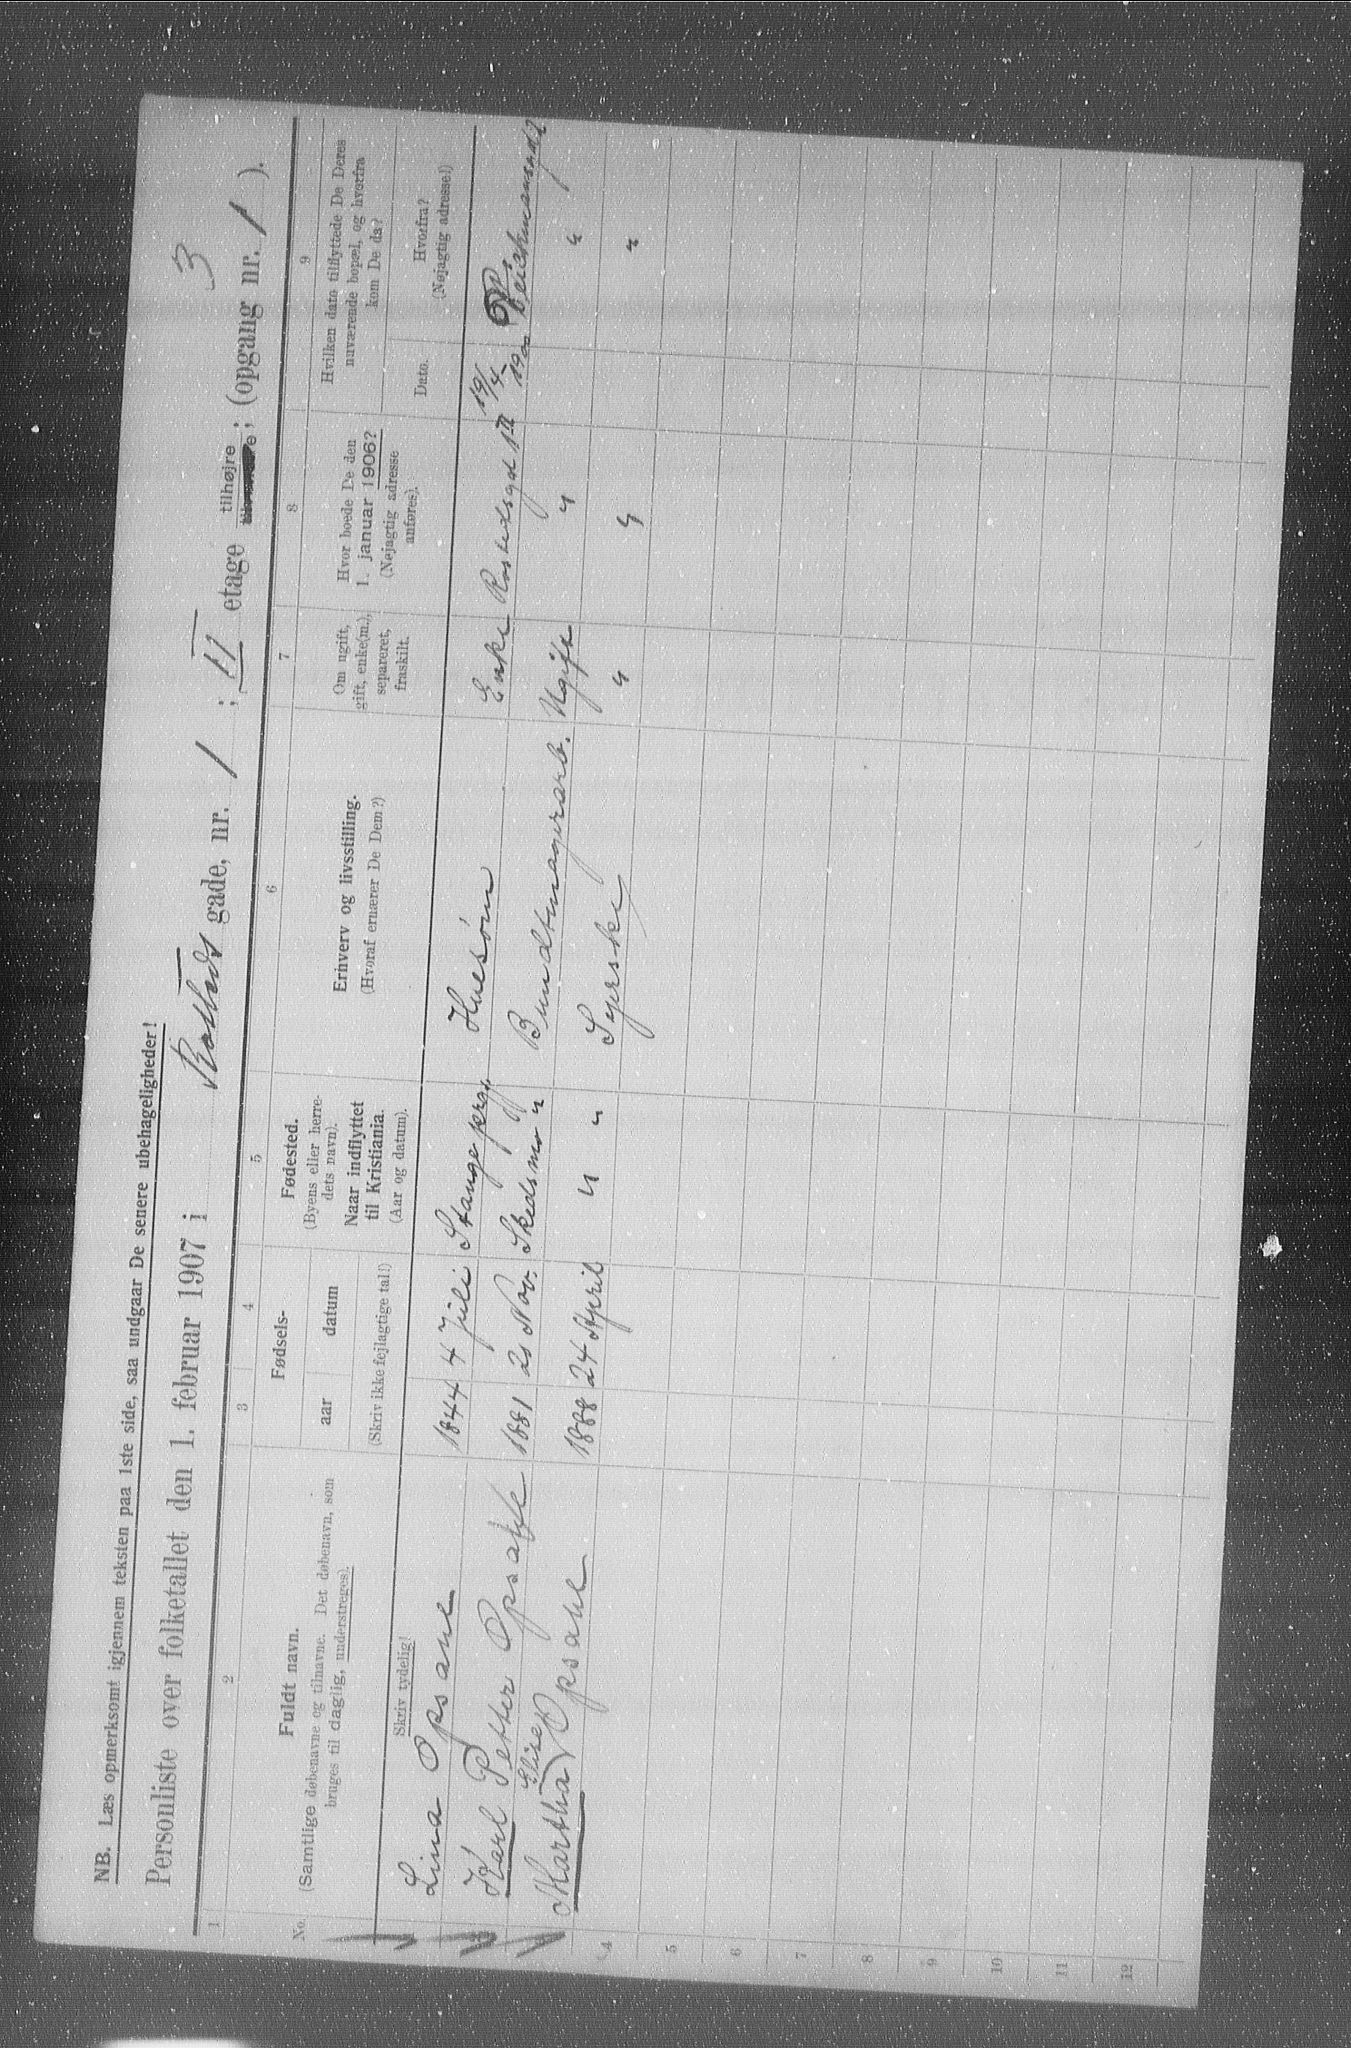 NB. Læs opmerksomt igjennem teksten paa 1ste side, saa undgaar De senere ubehageligheder!
3
Personliste over folketallet den 1. februar 1907 i Rosteds gade, nr. 1 ; II etage tilhøjre ; (opgang nr. 1 ).
1 2 3 4 5 6 7 8 9
No.
Fuldt navn.
(Samtlige døbenavne og tilnavne. Det døbenavn, som
bruges til daglig, understreges).
Skriv tydelig!
Fødsels-
aar datum
(Skriv ikke fejlagtige tal!)
Fødested.
(Byens eller herre-
dets navn).
Naar indflyttet
til Kristiania.
(Aar og datum).
Erhverv og livsstilling.
(Hvoraf ernærer De Dem?)
Om ugift,
gift, enke(m.),
separeret,
fraskilt.
Hvor boede De den
1. januar 1906?
(Nøjagtig adresse
anføres).
Hvilken dato tilflyttede De Deres
nuværende bopæl, og hvorfra
kom De da?
Dato.
Hvorfra?
(Nøjagtig adresse!)
Lina Opsahl 1844 4 Juli Stange Hussøm Enke Rostedsgd 1 II 19/4 1900
Karl Petter Opsahl 1881 25 Nov. Skedsmo " Bundtmagerarb. Ugift " "
Martha Elise Opsahl 1888 24 April " " Syerske " " "
4
5
6
7
8
9
10
11
12